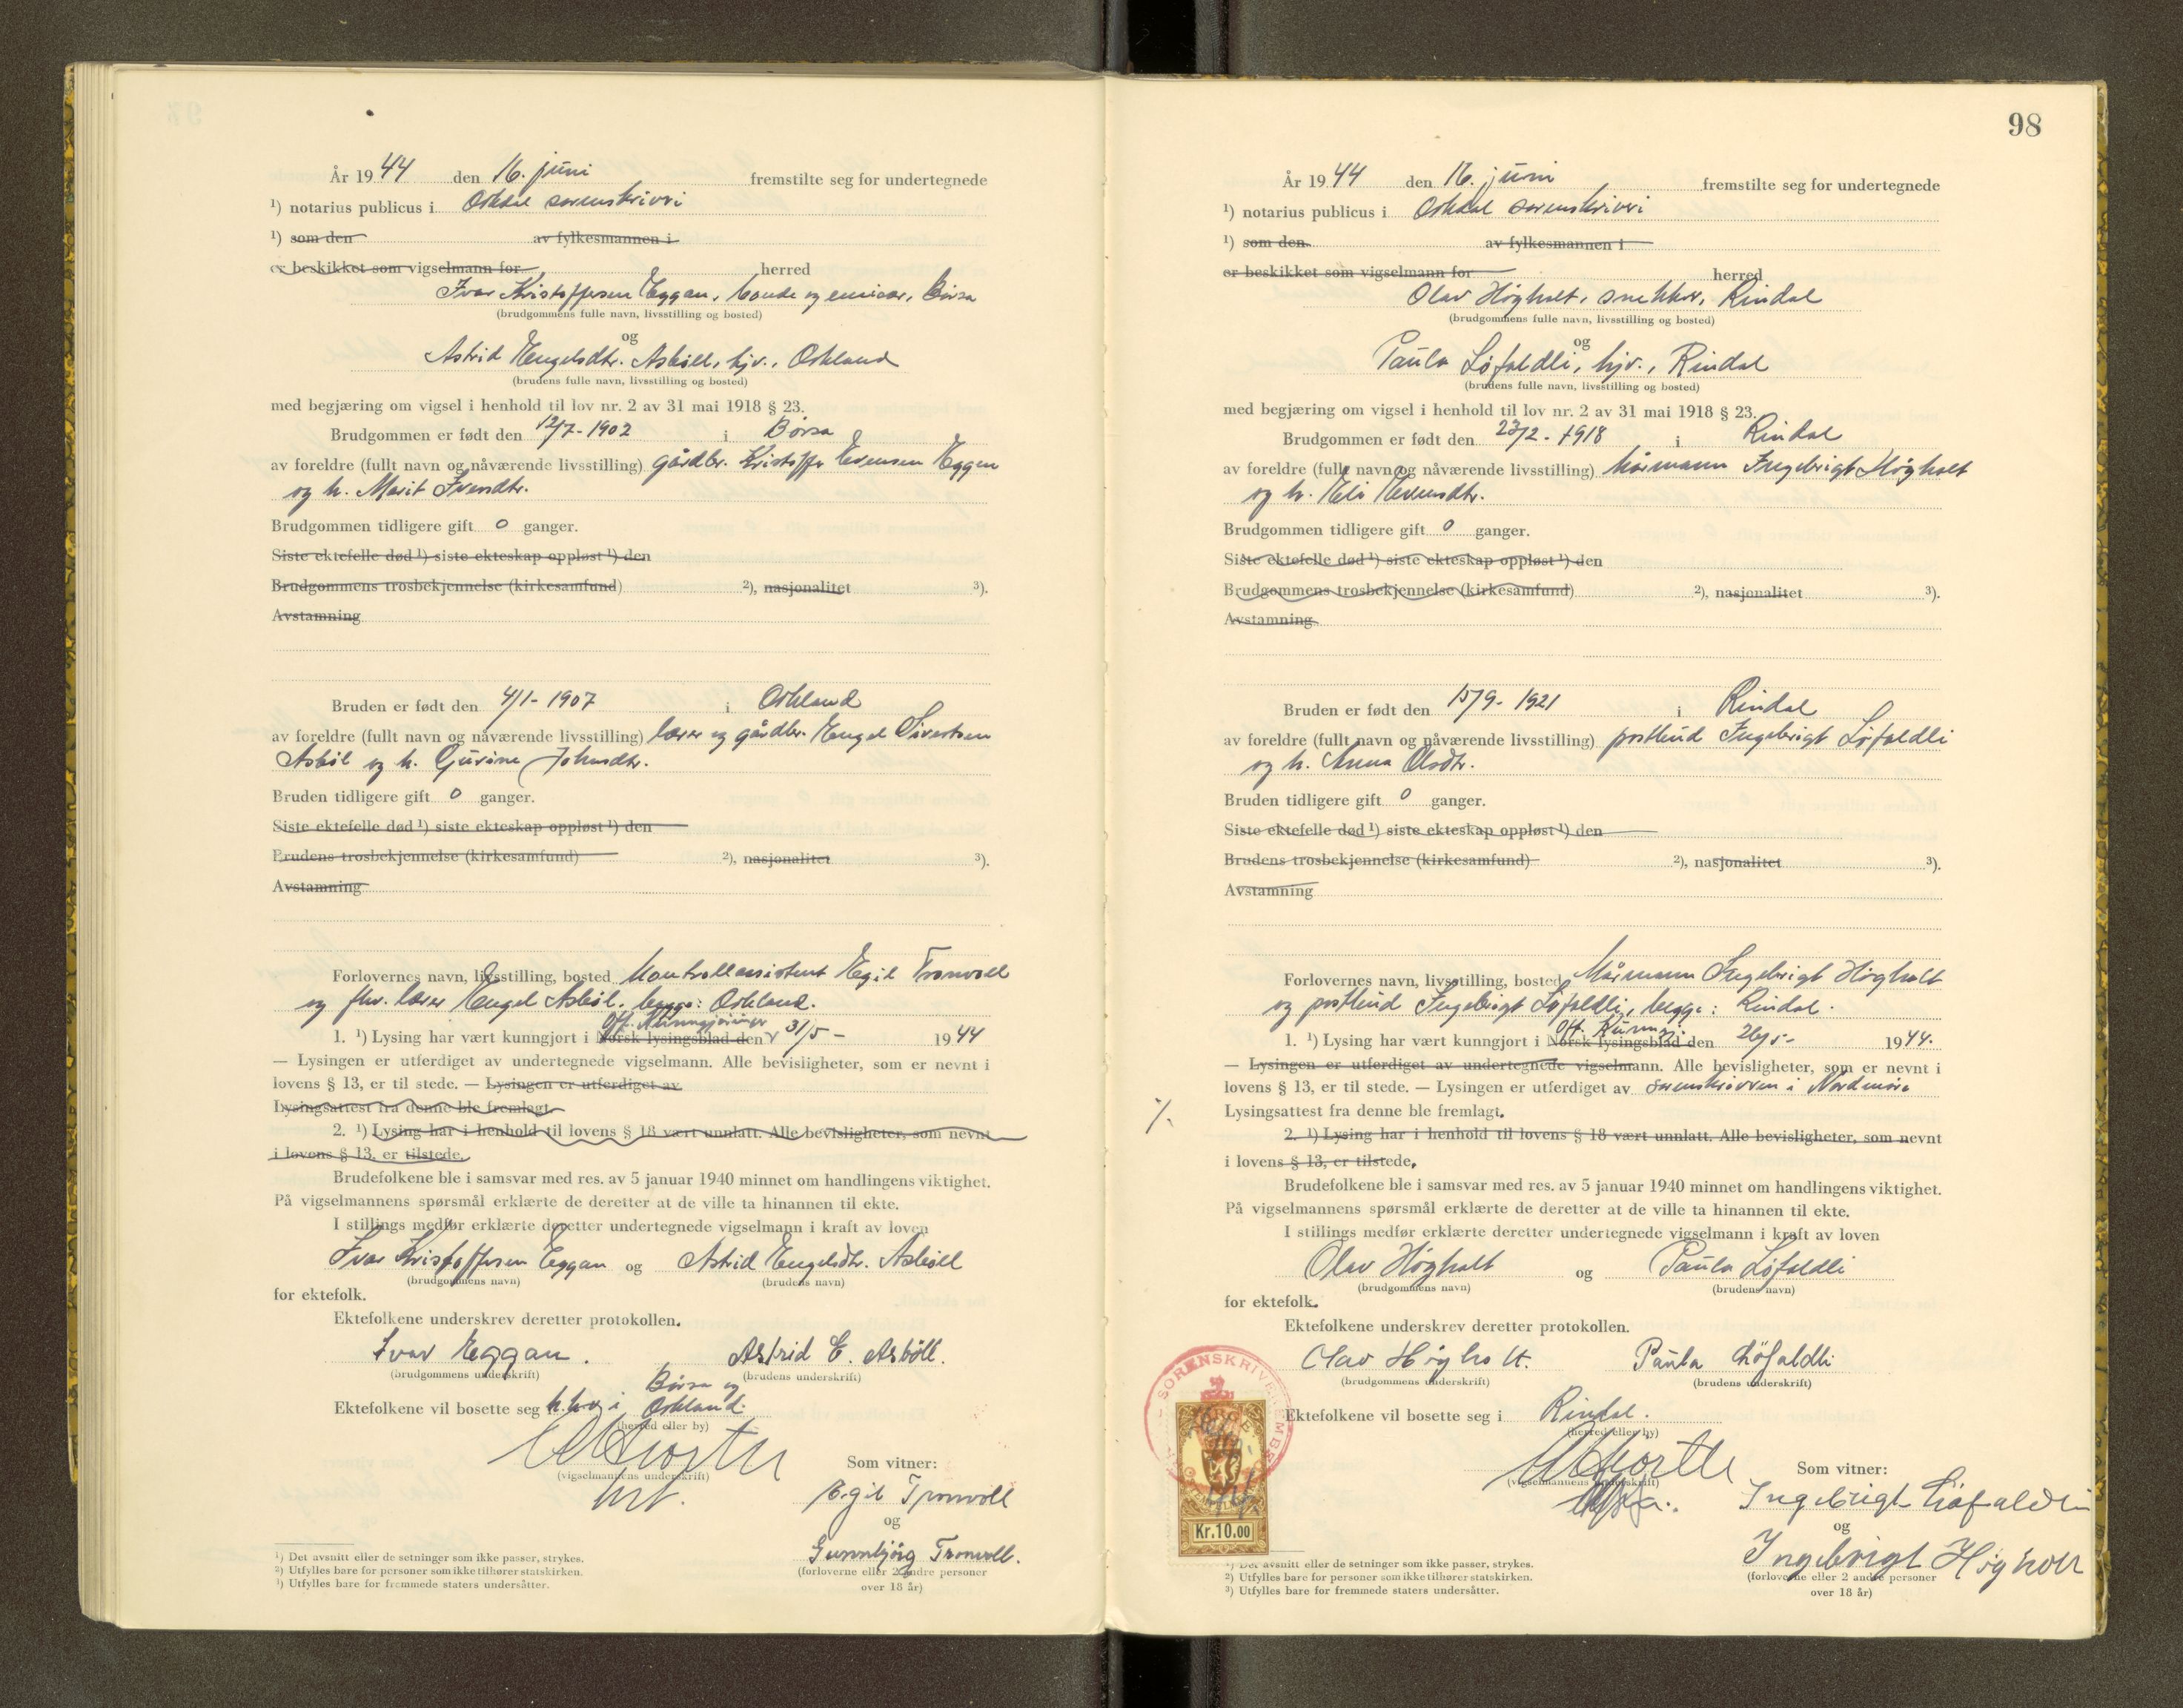 År 1944 den 16. juni fremstilte seg for undertegnede
¹) notarius publicus i Orkdal sorenskriveri
¹) som den av fylkesmannen i
er beskikket som vigselmann for herred
Ivar Kristoffersen Eggan, bonde og emisær, Børsa
(brudgommens fulle navn, livsstilling og bosted)
og
Astrid Engelsdtr. Asbøll, hjv., Orkland
(brudens fulle navn, livsstilling og bosted)
med begjæring om vigsel i henhold til lov nr. 2 av 31 mai 1918 § 23.
Brudgommen er født den 12/7-1902 i Børsa
av foreldre (fullt navn og nåværende livsstilling) gårdbr. Kristoffer Evensen Eggen
og h. Marit Iversdtr.
Brudgommen tidligere gift 0 ganger.
Siste ektefelle død ¹) siste ekteskap oppløst ¹) den
Brudgommens trosbekjennelse (kirkesamfund) ²), nasjonalitet ³).
Avstamning
Bruden er født den 4/1-1907 i Orkland
av foreldre (fullt navn og nåværende livsstilling) lærer og gårdbr. Engel Sivertsen
Asbøl og h. Gurine Johnsdtr.
Bruden tidligere gift 0 ganger.
Siste ektefelle død ¹) siste ekteskap oppløst ¹) den
Brudens trosbekjennelse (kirkesamfund) ²), nasjonalitet ³).
Avstamning
Forlovernes navn, livsstilling, bosted Kontrollassistent Egil Tronvoll
og fhv. lærer Engel Asbøl, begge: Orkland.
Off. Kunngjøringer
1. ¹) Lysing har vært kunngjort i Norsk lysingsblad den 31/5 - 1944
— Lysingen er utferdiget av undertegnede vigselmann. Alle bevisligheter, som er nevnt i
lovens § 13, er til stede. — Lysingen er utferdiget av
Lysingsattest fra denne ble fremlagt.
2. ¹) Lysing har i henhold til lovens § 18 vært unnlatt. Alle bevisligheter, som nevnt
i lovens § 13, er tilstede.
Brudefolkene ble i samsvar med res. av 5 januar 1940 minnet om handlingens viktighet.
På vigselmannens spørsmål erklærte de deretter at de ville ta hinannen til ekte.
I stillings medfør erklærte deretter undertegnede vigselmann i kraft av loven
Ivar Kristoffersen Eggan og Astrid Engelsdtr. Asbøll
(brudgommens navn) (brudens navn)
for ektefolk.
Ektefolkene underskrev deretter protokollen.
Ivar Eggan. Astrid E. Asbøll.
(brudgommens underskrift) (brudens underskrift)
Børsa og
Ektefolkene vil bosette seg h.h.v. i Orkland.
(herred eller by)
(vigselmannens underskrift)
Som vitner:
Egil Tronvoll
og
Gunnbjørg Tronvoll.
(forloverne eller 2 andre personer
over 18 år)
¹) Det avsnitt eller de setninger som ikke passer, strykes.
²) Utfylles bare for personer som ikke tilhører statskirken.
³) Utfylles bare for fremmede staters undersåtter.
98
År 1944 den 16. juni fremstilte seg for undertegnede
¹) notarius publicus i Orkdal sorenskriveri
¹) som den av fylkesmannen i
er beskikket som vigselmann for herred
Olav Høgholt, snekker, Rindal
(brudgommens fulle navn, livsstilling og bosted)
og
Paula Løfaldli, hjv., Rindal
(brudens fulle navn, livsstilling og bosted)
med begjæring om vigsel i henhold til lov nr. 2 av 31 mai 1918 § 23.
Brudgommen er født den 23/2-1918 i Rindal
av foreldre (fullt navn og nåværende livsstilling) Ingebrigt Høgholt
og h. Eli Evensdtr.
Brudgommen tidligere gift 0 ganger.
Siste ektefelle død ¹) siste ekteskap oppløst ¹) den
Brudgommens trosbekjennelse (kirkesamfund) ²), nasjonalitet ³).
Avstamning
Bruden er født den 15/9-1921 i Rindal
av foreldre (fullt navn og nåværende livsstilling) postbud Ingebrigt Løfaldli
og h. Anna Olsdtr.
Bruden tidligere gift 0 ganger.
Siste ektefelle død ¹) siste ekteskap oppløst ¹) den
Brudens trosbekjennelse (kirkesamfund) ²), nasjonalitet ³).
Avstamning
Forlovernes navn, livsstilling, bosted Ingebrigt Høgholt
og postbud Ingebrigt Løfaldli, begge: Rindal.
Off. Kunngj.
1. ¹) Lysing har vært kunngjort i Norsk lysingsblad den 26/5- 1944.
— Lysingen er utferdiget av undertegnede vigselmann. Alle bevisligheter, som er nevnt i
lovens § 13, er til stede. — Lysingen er utferdiget av sorenskriveren i Nordmøre
Lysingsattest fra denne ble fremlagt.
2. ¹) Lysing har i henhold til lovens § 18 vært unnlatt. Alle bevisligheter, som nevnt
i lovens § 13, er tilstede.
Brudefolkene ble i samsvar med res. av 5 januar 1940 minnet om handlingens viktighet.
På vigselmannens spørsmål erklærte de deretter at de ville ta hinannen til ekte.
I stillings medfør erklærte deretter undertegnede vigselmann i kraft av loven
Olav Høgholt og Paula Løfaldli
(brudgommens navn) (brudens navn)
for ektefolk.
Ektefolkene underskrev deretter protokollen.
Olav Høgholt. Paula Löfaldli
(brudgommens underskrift) (brudens underskrift)
Ektefolkene vil bosette seg i Rindal.
(herred eller by)
(vigselmannens underskrift)
Som vitner:
Ingebrigt Löfaldli
og
Ingebrigt Høgholt
(forloverne eller 2 andre personer
over 18 år)
NORGE
Kr.10.00
¹) Det avsnitt eller de setninger som ikke passer, strykes.
²) Utfylles bare for personer som ikke tilhører statskirken.
³) Utfylles bare for fremmede staters undersåtter.